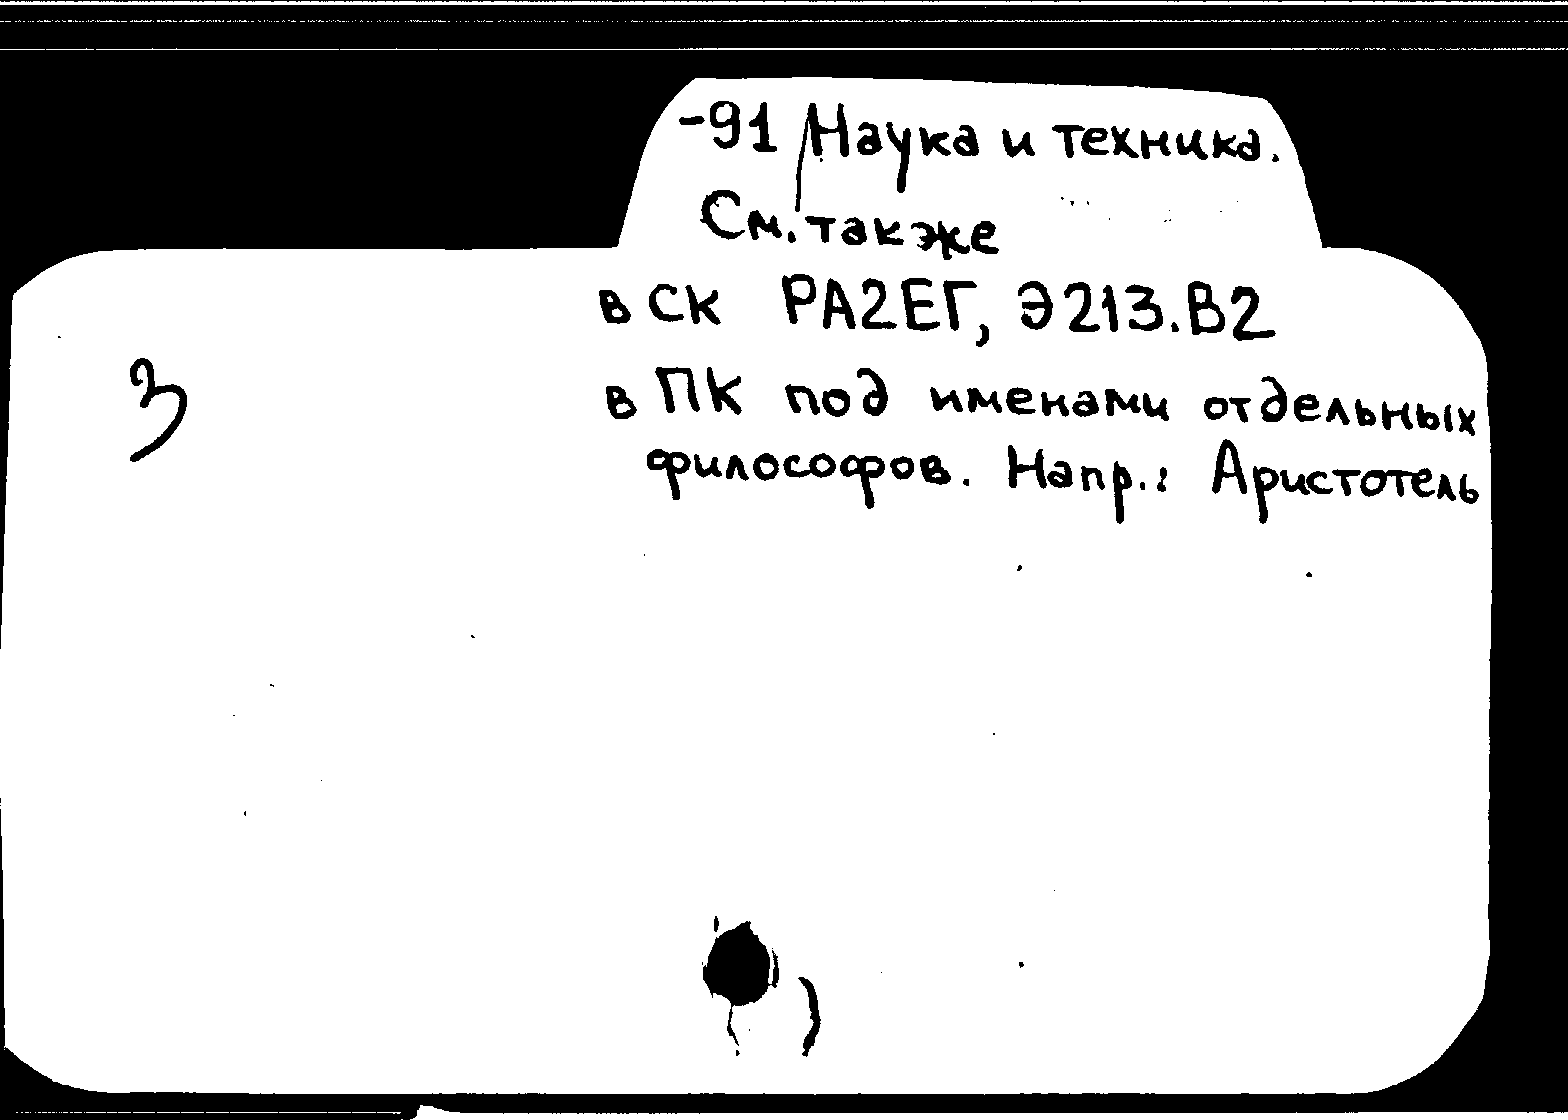 -91 Наука и техника.
См. также
в СК РА2ЕГ, Э213.В2
3
в ПК под именами отдельных
философов. Напр.: Аристотель